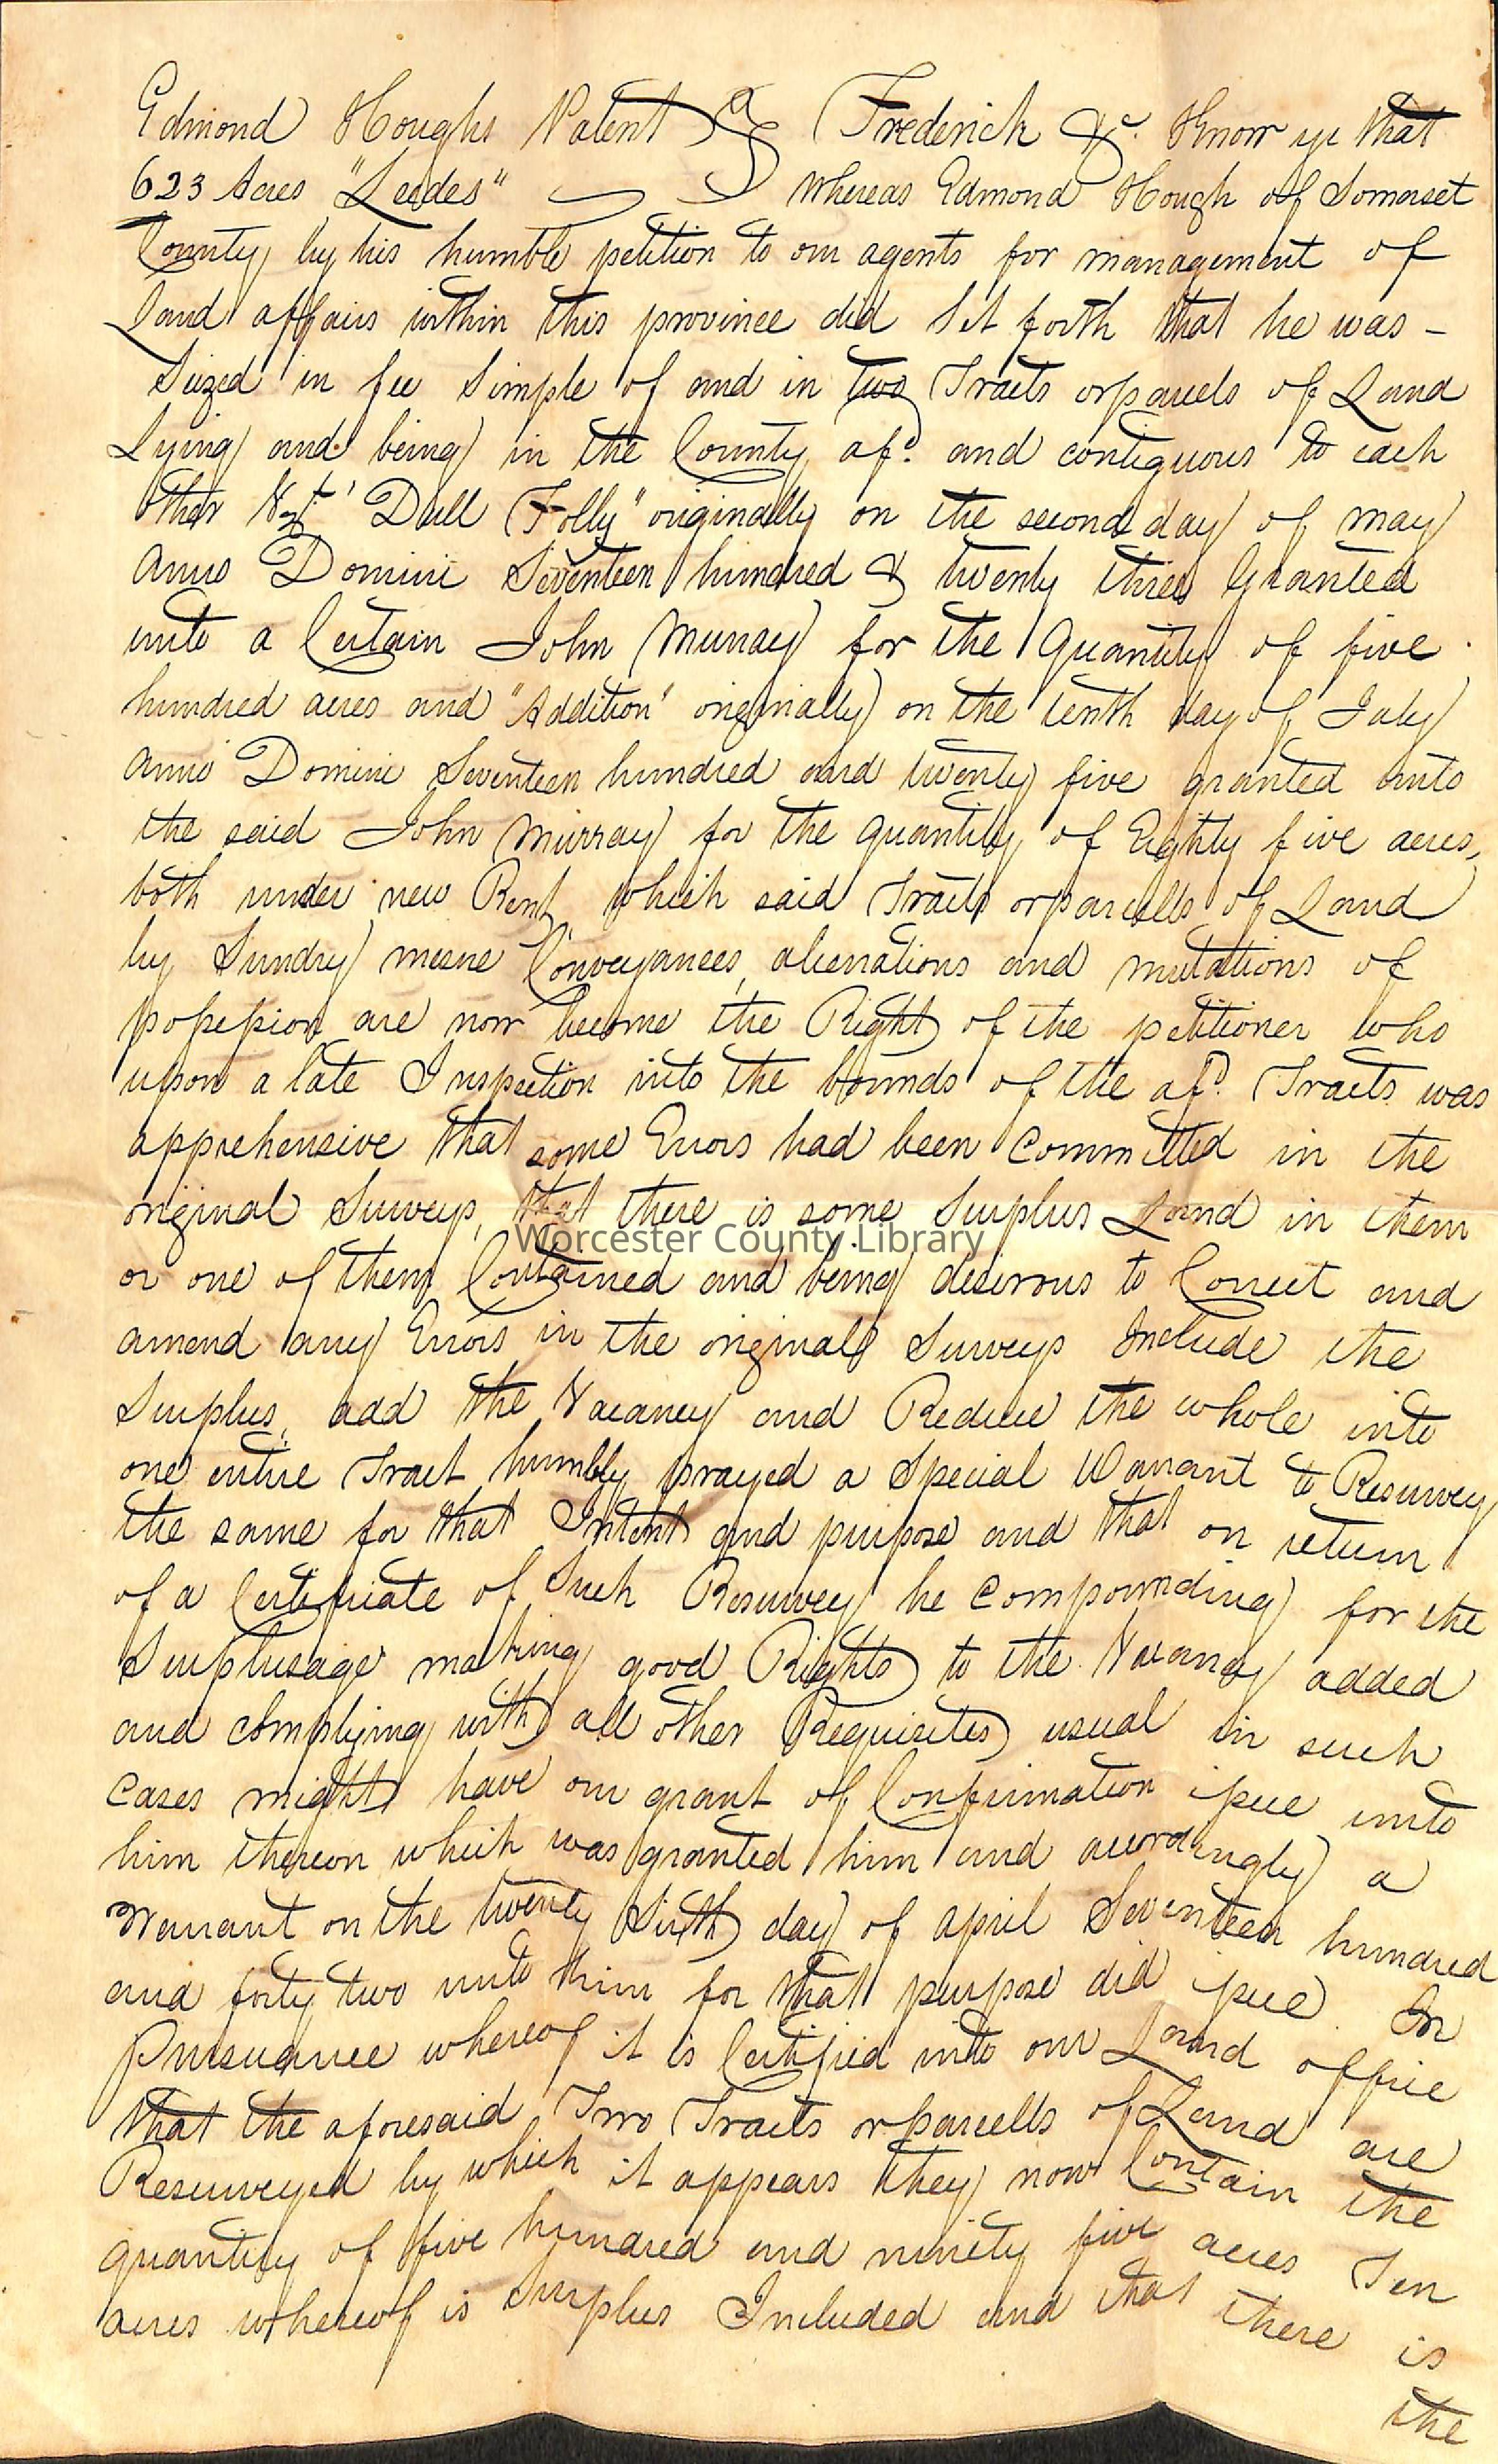 Edmond Houghs Patent } Frederick &c. Know ye that
623 Acres "Leedes" } Whereas Edmond Hough of Somerset
County by his humble petition to our agents for management of
Land affairs within this province did Set forth that he was -
Seized in fee Simple of and in two Tracts or parcels of Land
Lying and being in the County afd. and contiguous to each
Other Vzt "Dull Folly" originally on the second day of may
Anno Domini Seventeen hundred & twenty three Granted
unto a Certain John Murray for the Quantity of five
hundred acres and "Addition" originally on the tenth day of July
Anno Domini Seventeen hundred and twenty five granted unto
the said John Murray for the quantity of Eighty five acres,
both under new Rent, which said Tracts or parcells of Land
by Sundry mesne Conveyances, alienations and mutations of
possession are now become the Right of the petitioner who
upon a late Inspection into the bounds of the afd. Tracts was
apprehensive that some Errors had been Committed in the
original Surveys, that there is some Surplus Land in them
Worcester County Library
or one of them Contained and being desirous to Correct and
amend any Errors in the originals Surveys Include the
Surplus, add the Vacancy and Reduce the whole into
one entire Tract humbly prayed a Special Warrant to Resurvey
the same for that Intent and purpose and that on return
of a Certificate of Such Resurvey he Compounding for the
Surplusage making good Rights to the Vacancy added
and complying with all other Requisites usual in such
Cases might have our grant of Confirmation issue unto
him thereon which was granted him and accordingly a
Warrant on the twenty Sixth day of april Seventeen hundred
and forty two unto him for that purpose did issue. In
Pursuance whereof it is Certified into our Land office
that the aforesaid Two Tracts or parcells of Land are
Resurveyed by which it appears they now Contain the
quantity of five hundred and ninety five acres Ten
acres whereof is Surplus Included and that there is
the